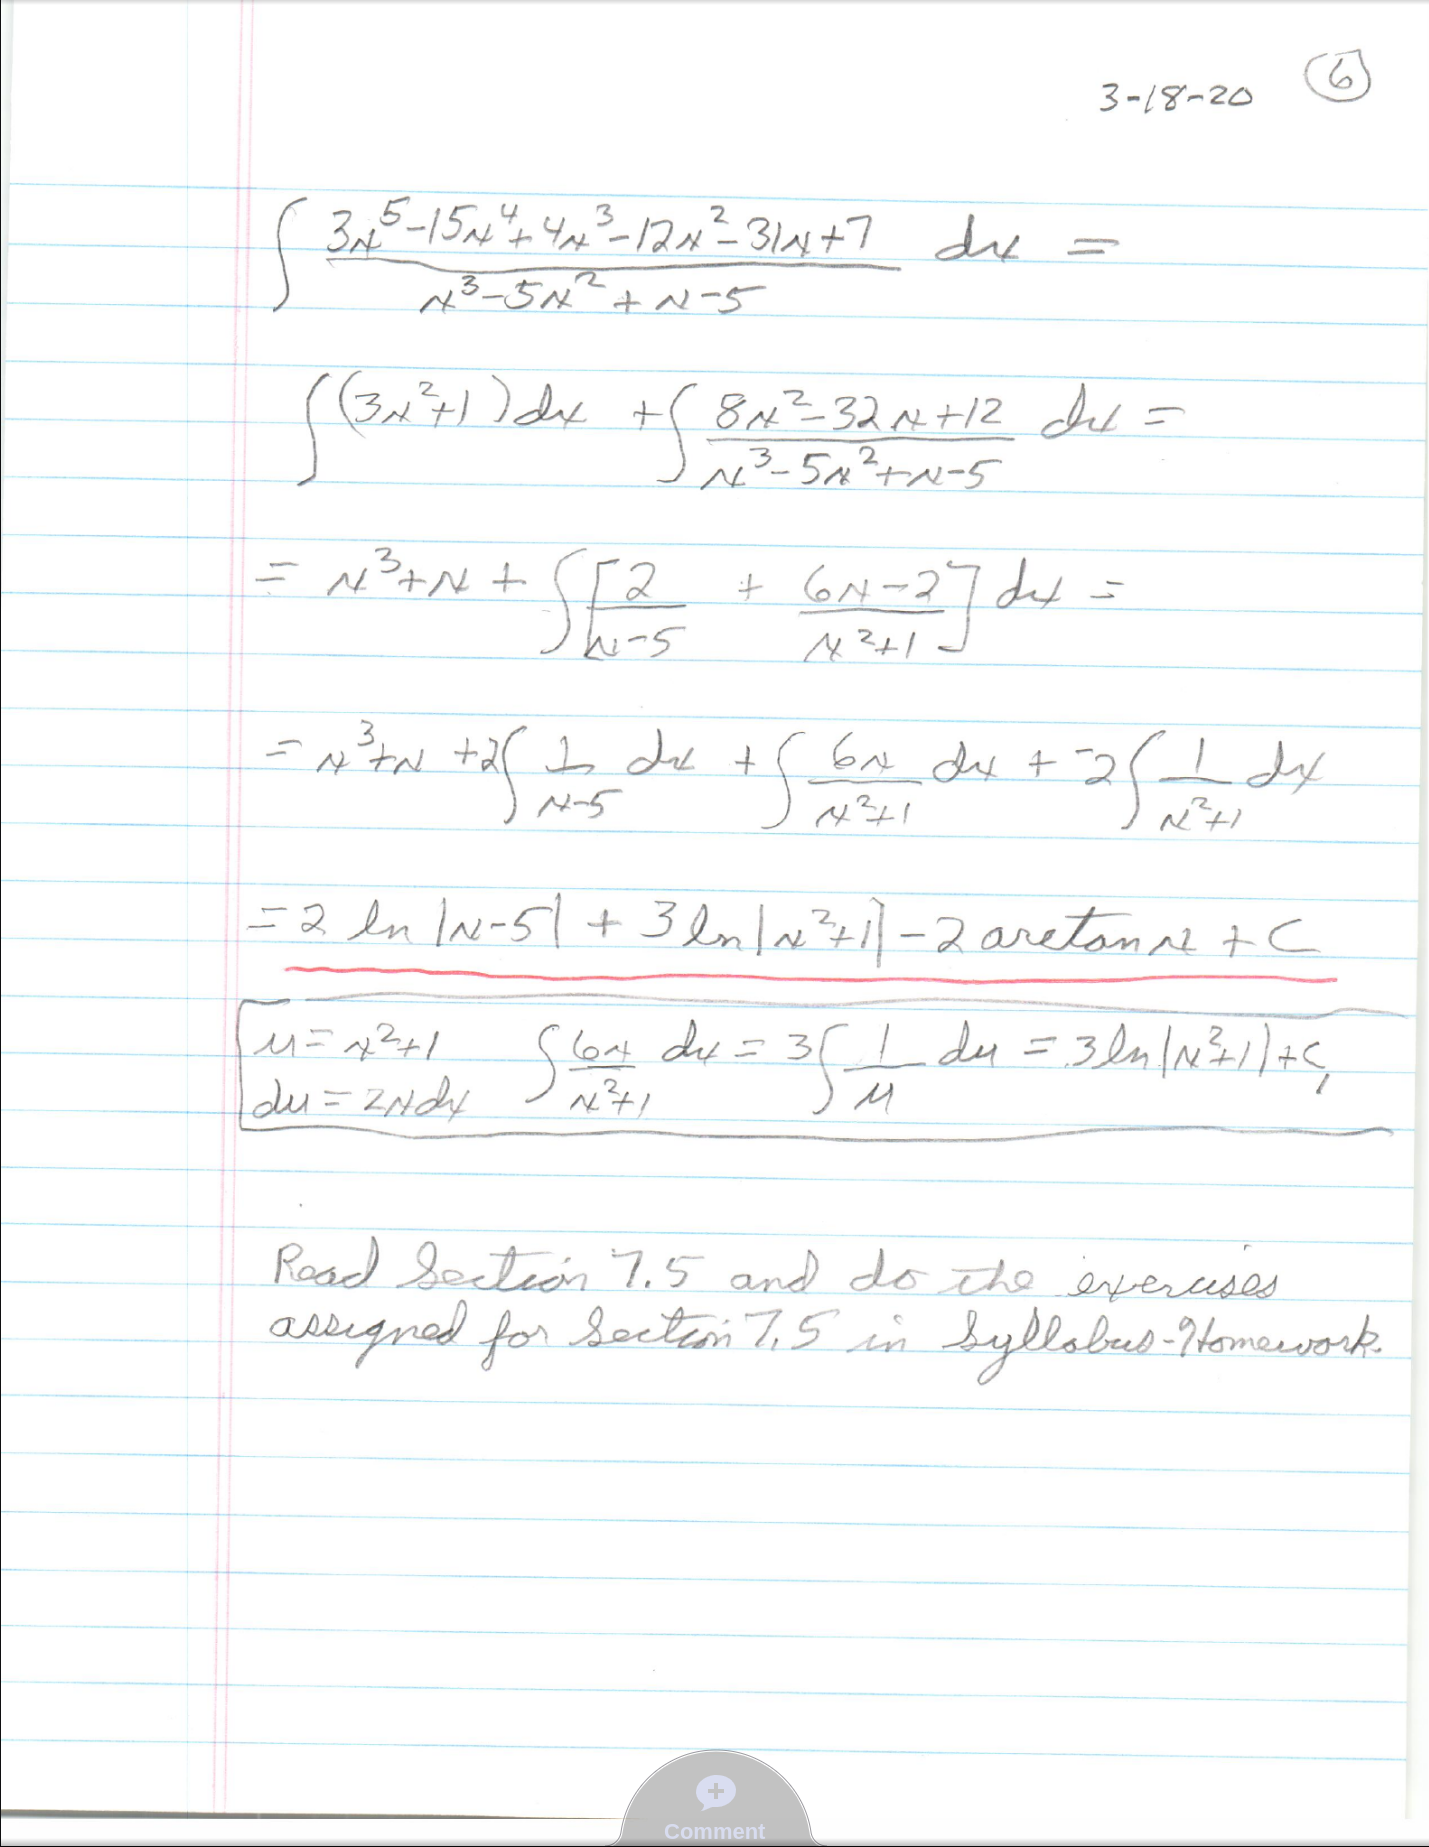 3-18-20 ⑥
∫ (3x⁵-15x⁴+4x³-12x²-31x+7)/(x³-5x²+x-5) dx =
∫(3x²+1)dx + ∫ (8x²-32x+12)/(x³-5x²+x-5) dx =
= x³+x + ∫[2/(x-5) + (6x-2)/(x²+1)] dx =
= x³+x +2∫ 1/(x-5) dx + ∫ 6x/(x²+1) dx + -2∫ 1/(x²+1) dx
= 2 ln |x-5| + 3 ln|x²+1| - 2 arctan x + C
u = x²+1 ∫ 6x/(x²+1) dx = 3∫ 1/u du = 3 ln|x²+1|+C₁
du = 2x dx
Read Section 7.5 and do the exercises
assigned for Section 7.5 in Syllabus-Homework.
Comment